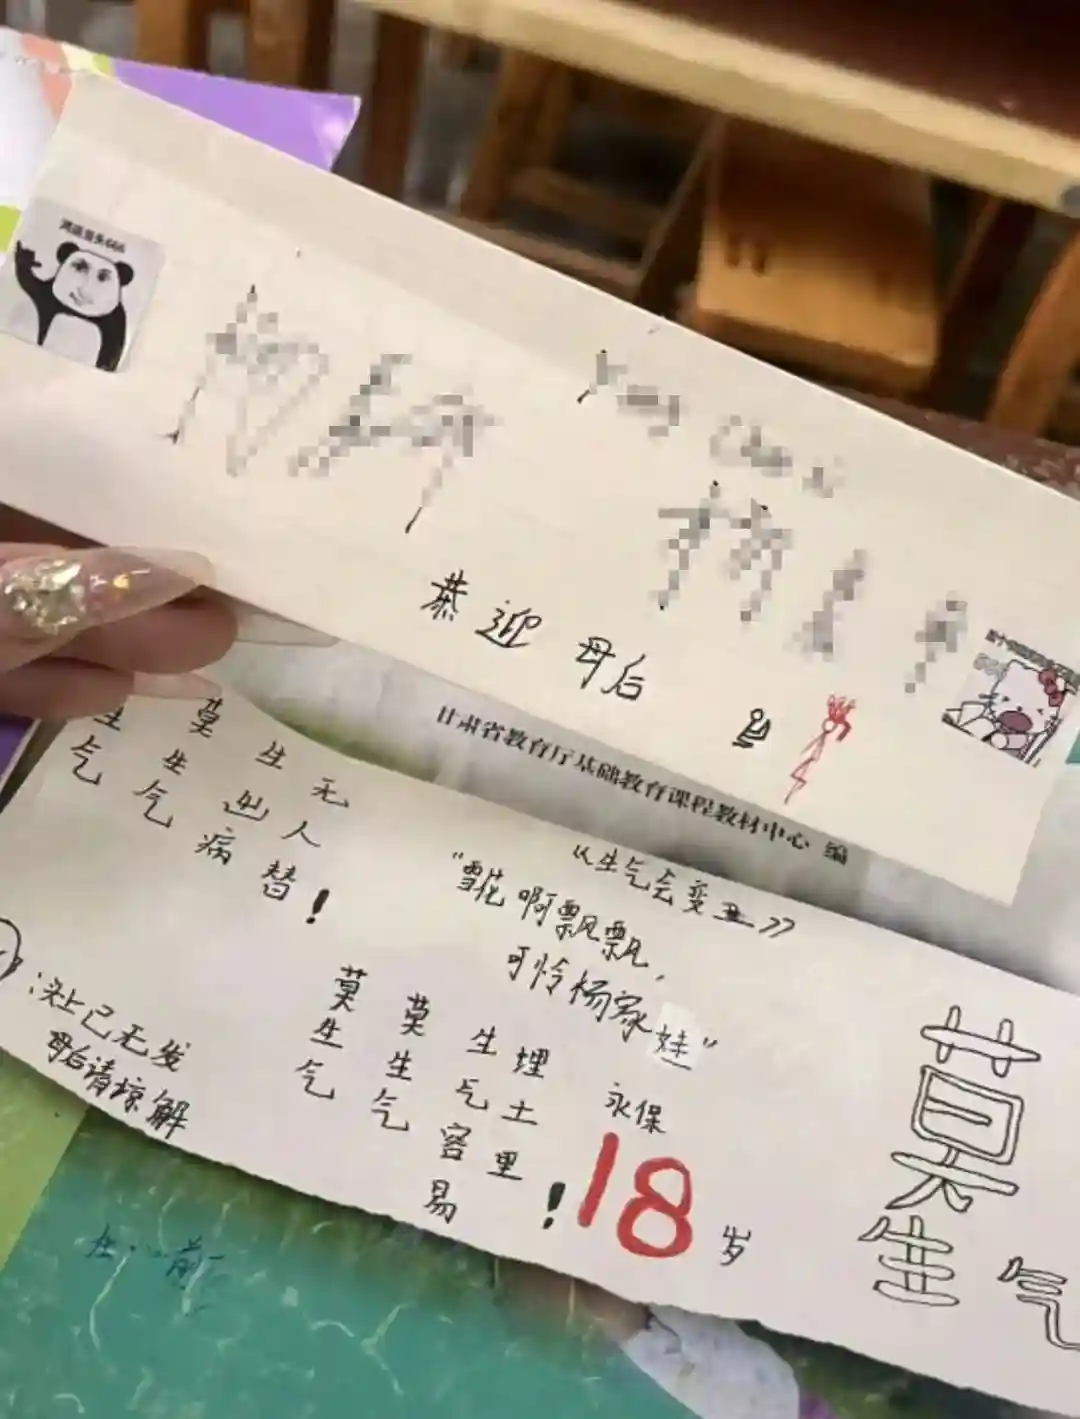 恭迎母后
甘肃省教育厅基础教育课程教材中心 编
《生气会变丑》
“雪花啊飘飘，
可怜杨家娃”
生气
莫生气
生出病
无人替！
莫生气
莫生气
生气容易
埋土里！
永保
18岁
：头上已无发
母后请谅解
莫生气